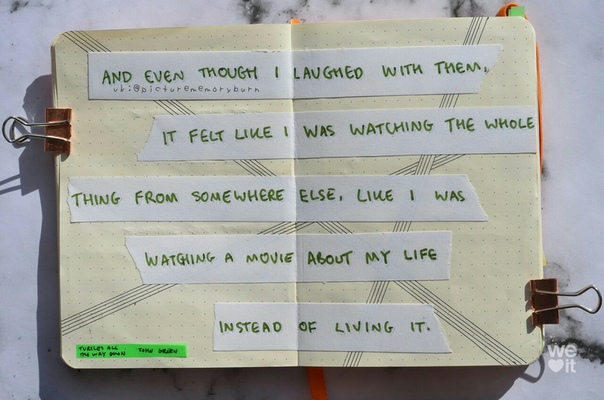 AND EVEN THOUGH I LAUGHED WITH THEM,
vk:@picturememoryburn
IT FELT LIKE I WAS WATCHING THE WHOLE
THING FROM SOMEWHERE ELSE, LIKE I WAS
WATCHING A MOVIE ABOUT MY LIFE
INSTEAD OF LIVING IT.
TURTLES ALL
THE WAY DOWN JOHN GREEN
we
it